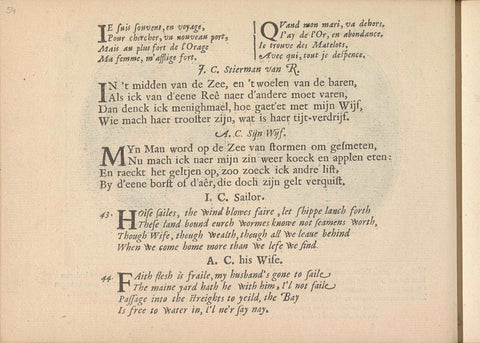 54
IE suit souvent, en voyage,
Pour chercher, un nouveau port,
Mais au plus fort de l'Orage
Ma femme, m'afflige fort.
QVand mon mari, va dehors,
J'ay de l'Or, en abondance,
Ie trouve des Matelots,
Avec qui, tout je despence.
J. C. Stierman van R.
IN 't midden van de Zee, en 't woelen van de baren,
Als ick van d'eene Reê naer d'andere moet varen,
Dan denck ick menighmael, hoe gaet'et met mijn Wijf,
Wie mach haer trooster zijn, wat is haer tijt-verdrijf.
A. C. Sijn Wijf.
MYn Man word op de Zee van stormen om gesmeten,
Nu mach ick naer mijn zin weer koeck en applen eten:
En raeckt het geltjen op, zoo zoeck ick andre list,
By d'eene borst of d'aêr, die doch zijn gelt verquist.
I. C. Sailor.
43. HOise sailes, the wind blowes faire, let shippe lanch forth
These land bound eurch wormes knowe not seamens worth,
Though Wife, though wealth, though all we leaue behind
When we come home more than we lefe we find.
A. C. his Wife.
44 FAith flesh is fraile, my husband's gone to saile
The maine yard hath he with him, I'l not faile
Passage into the streights to yeild, the Bay
Is free to water in, I'l ne'r say nay.